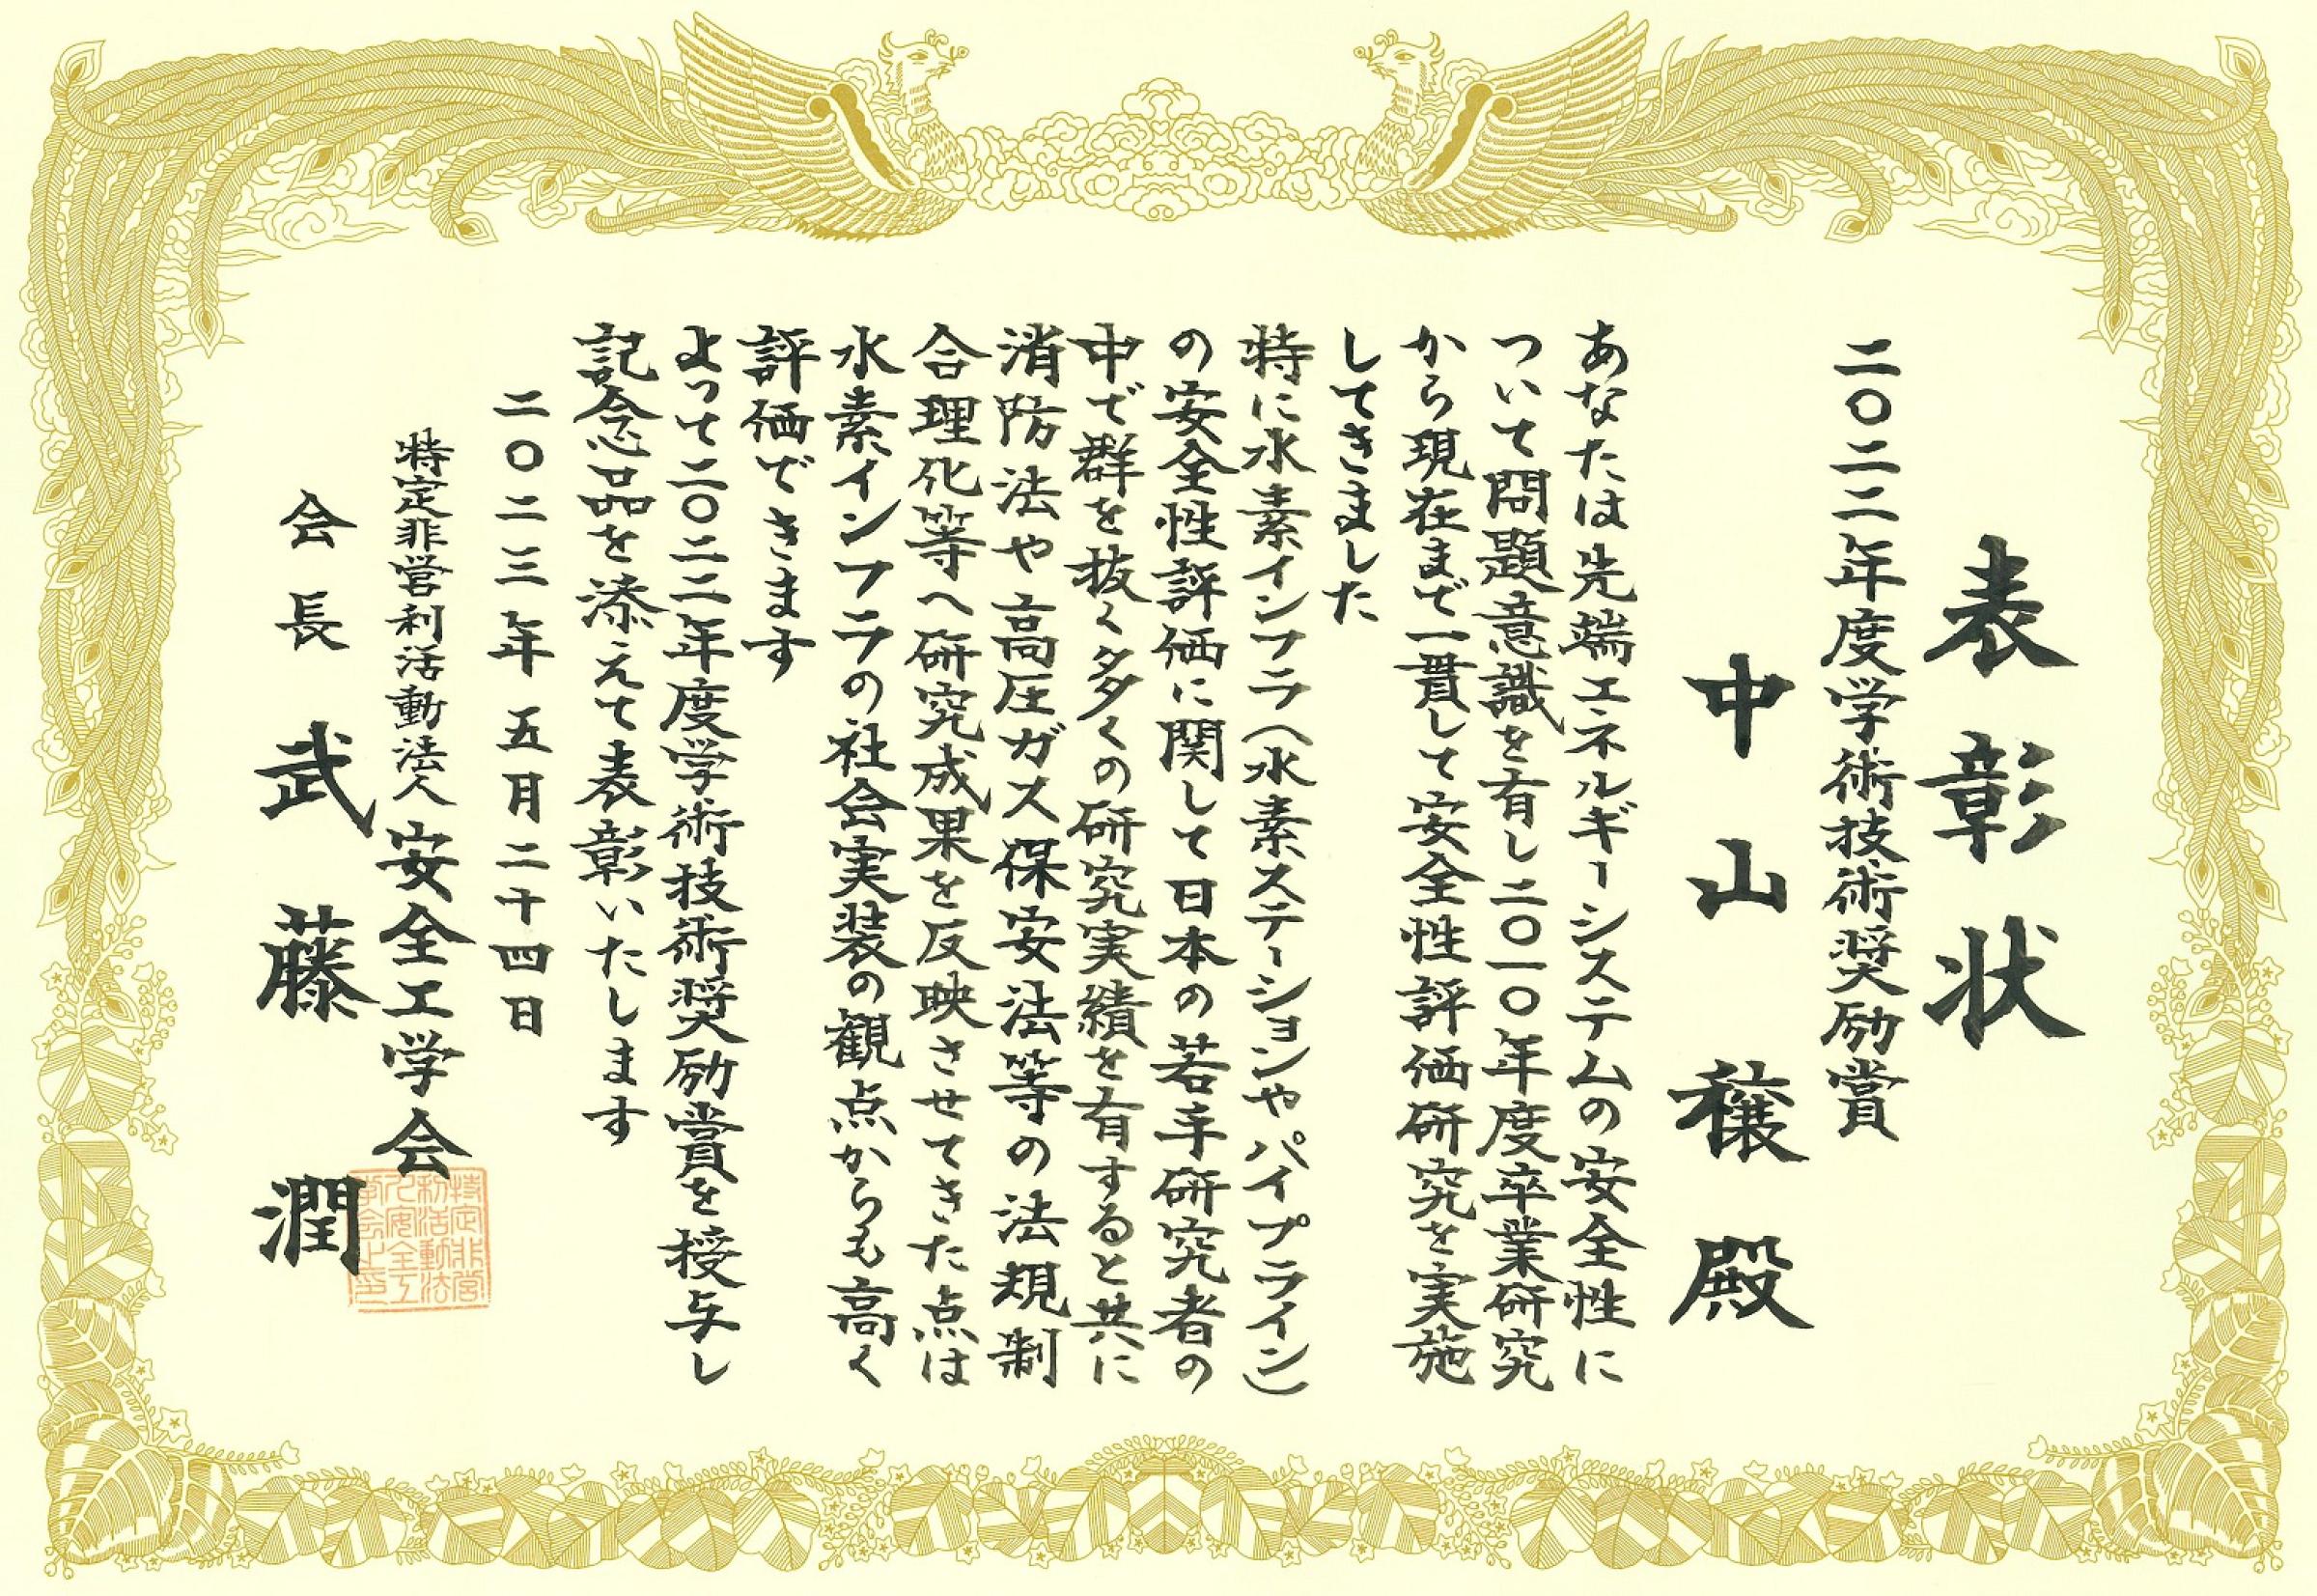 表彰状
二〇二二年度学術技術奨励賞
中山穣殿
あなたは先端エネルギーシステムの安全性に
ついて問題意識を有し二〇一〇年度卒業研究
から現在まで一貫して安全性評価研究を実施
してきました
特に水素インフラ（水素ステーションやパイプライン）
の安全性評価に関して日本の若手研究者の
中で群を抜く多くの研究実績を有すると共に
消防法や高圧ガス保安法等の法規制
合理化等へ研究成果を反映させてきた点は
水素インフラの社会実装の観点からも高く
評価できます
よって二〇二二年度学術技術奨励賞を授与し
記念品を添えて表彰いたします
二〇二三年五月二十四日
特定非営利活動法人安全工学会
会長武藤潤
特定非営
利活動法
人安全工
学会之印